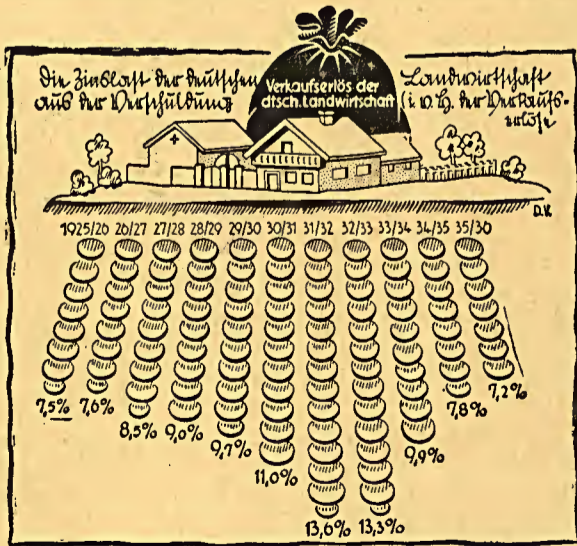 Die Zinslast der deutschen Landwirtschaft
aus der Verschuldung (i. v. H. der Verkaufs-
erlöse
Verkaufserlös der
dtsch. Landwirtschaft
D.K
1925/26 26/27 27/28 28/29 29/30 30/31 31/32 32/33 33/34 34/35 35/36
7,5% 7,6% 8,5% 9,0% 9,7% 11,0% 13,6% 13,3% 9,9% 7,8% 7,2%